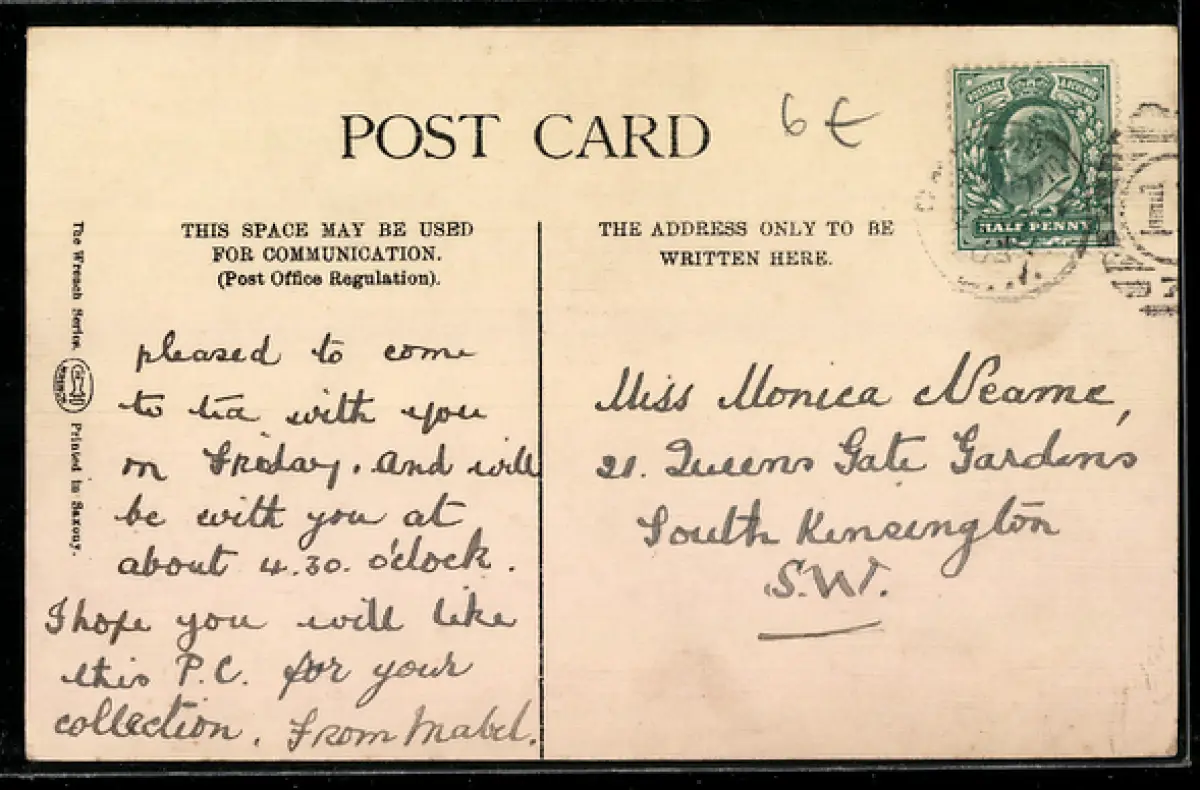 POST CARD
6€
POSTAGE & REVENUE
HALF PENNY
THIS SPACE MAY BE USED
FOR COMMUNICATION.
(Post Office Regulation).
THE ADDRESS ONLY TO BE
WRITTEN HERE.
The Wrench Series.
Printed in Saxony.
pleased to come
to tea with you
on Friday. And will
be with you at
about 4.30. o'clock.
I hope you will like
this P.C. for your
collection. From Mabel.
Miss Monica Nearne,
21. Queens Gate Gardens
South Kensington
S.W.